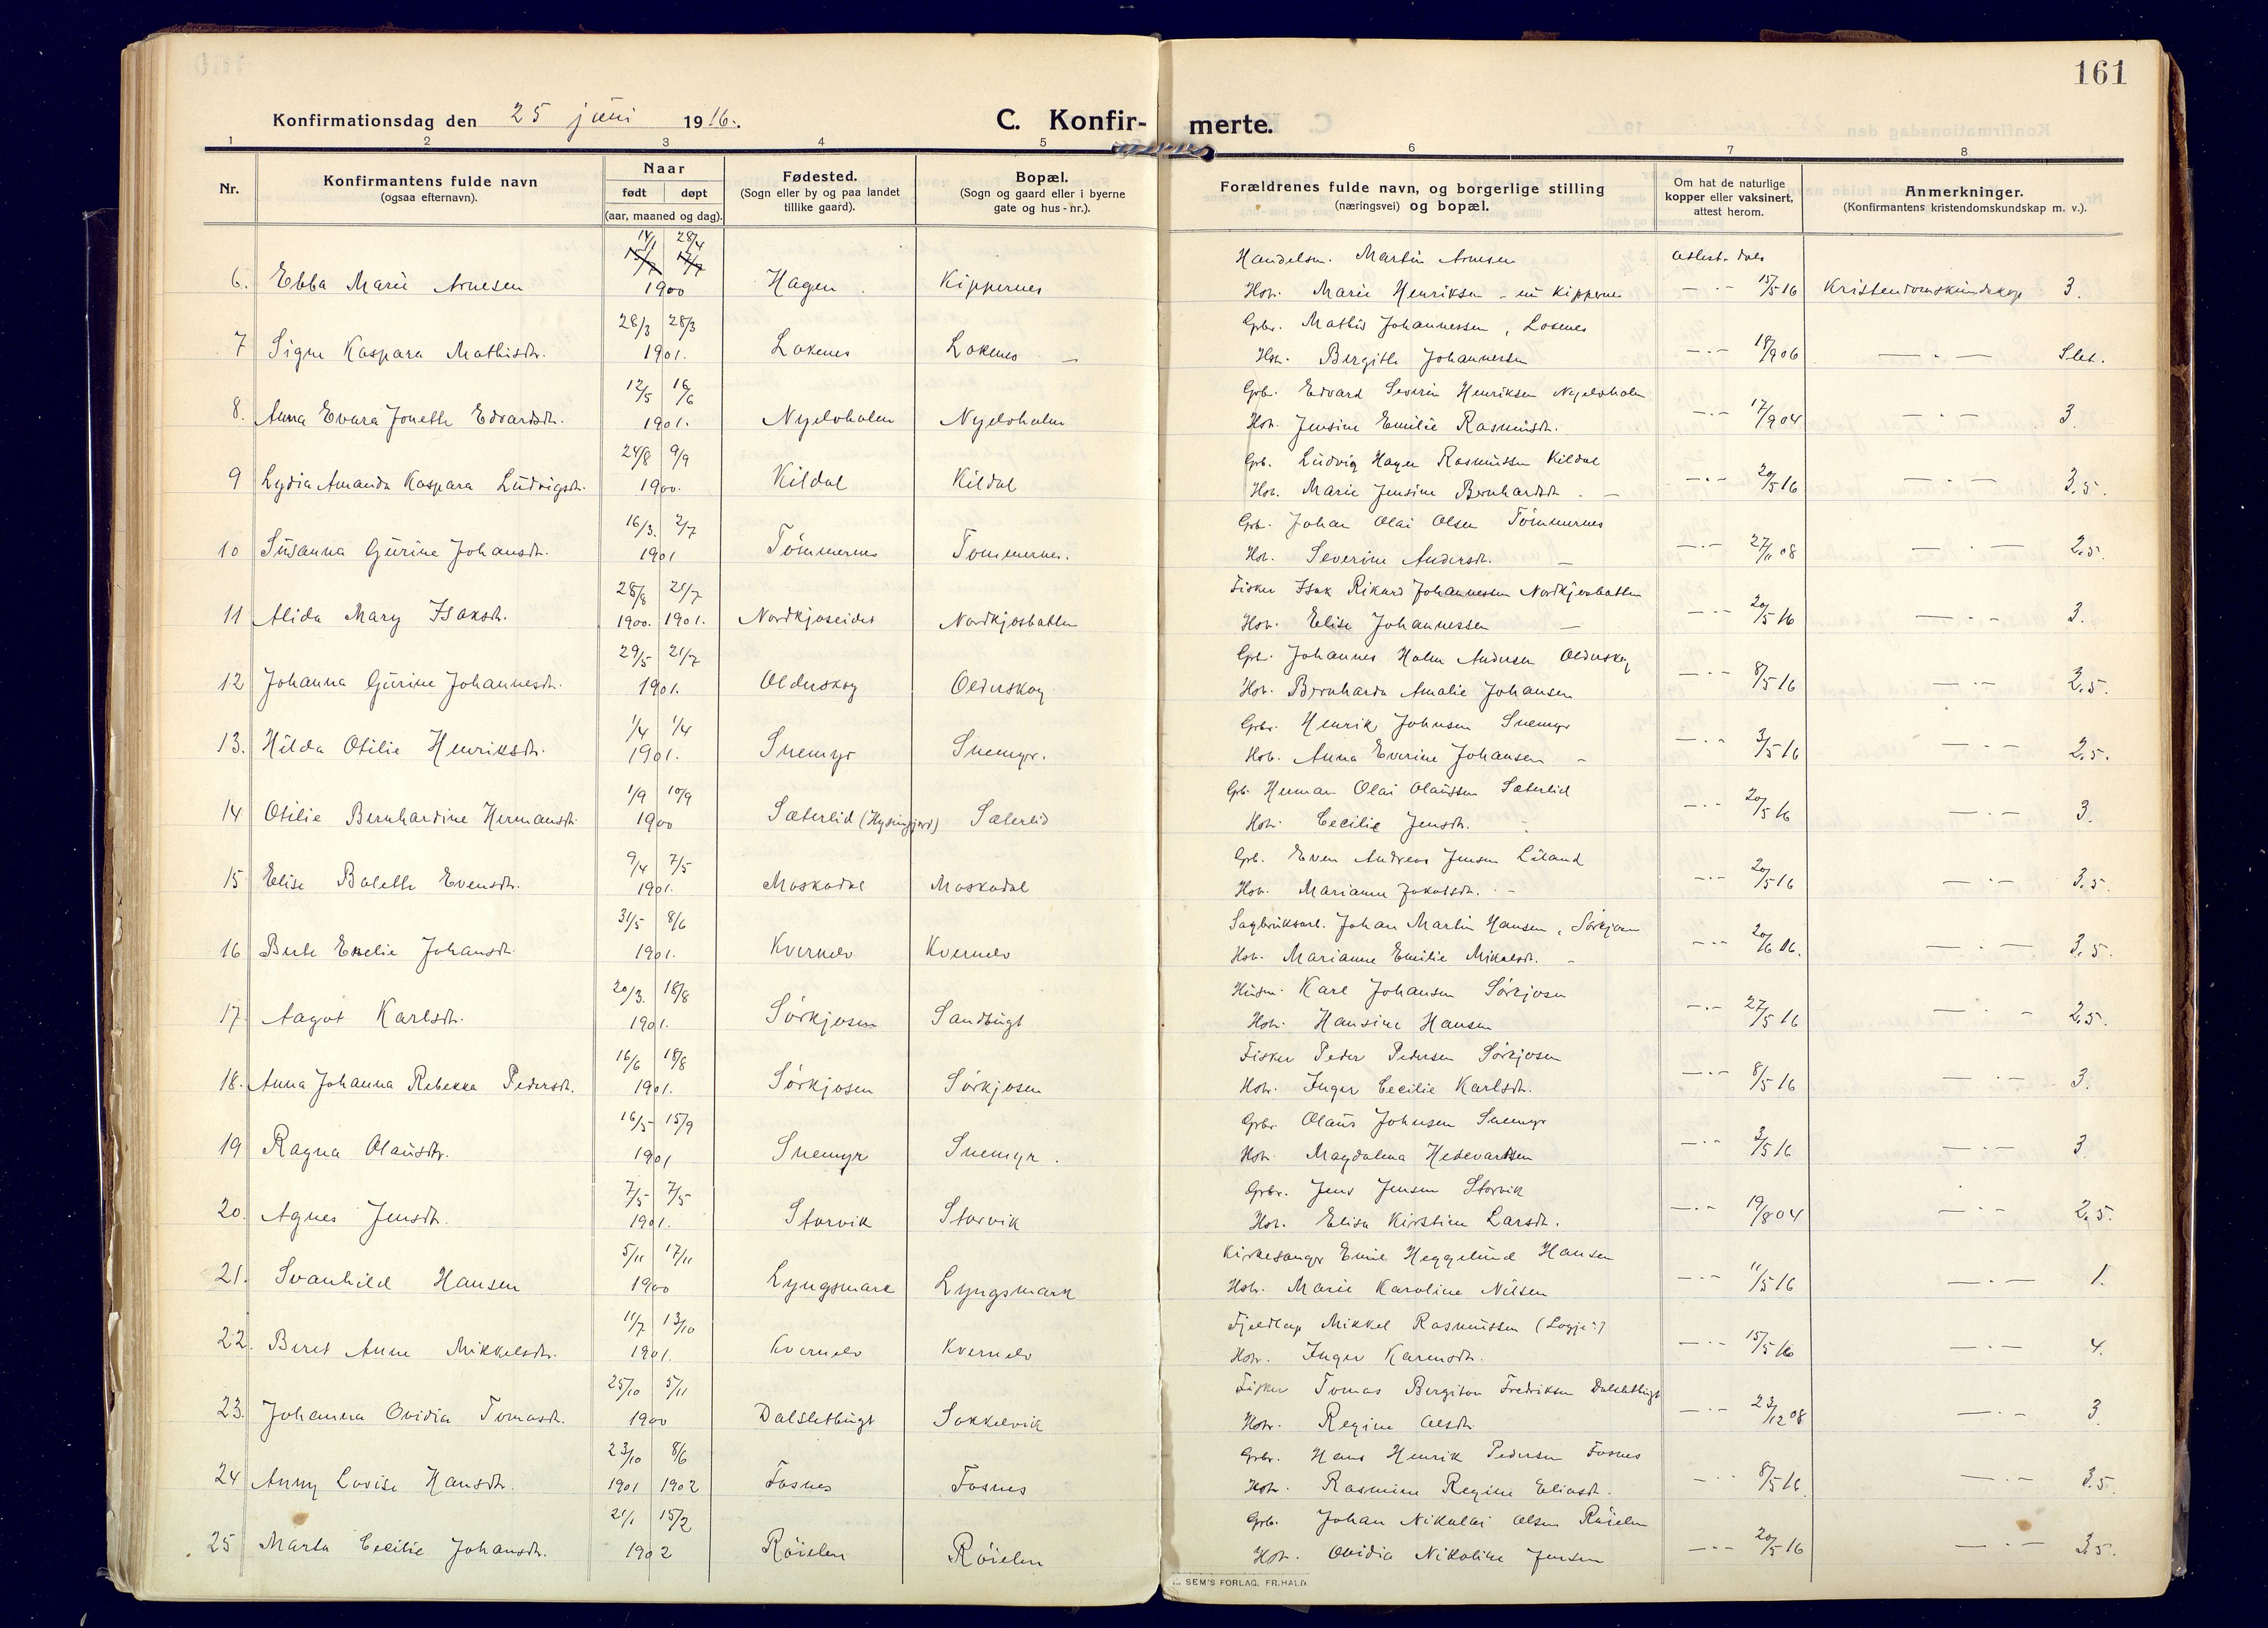 161
Konfirmationsdag den 25 juni 1916.
C. Konfir- merte.
1 2 3 4 5 6 7 8
Nr.
Konfirmantens fulde navn
(ogsaa efternavn).
Naar
født døpt
(aar, maaned og dag).
Fødested.
(Sogn eller by og paa landet
tillike gaard).
Bopæl.
(Sogn og gaard eller i byerne
gate og hus-nr.).
Forældrenes fulde navn, og borgerlige stilling
(næringsvei) og bopæl.
Om hat de naturlige
kopper eller vaksinert,
attest herom.
Anmerkninger.
(Konfirmantens kristendomskundskap m. v.).
14/1 28/4 Handelsm. Martin Arnesen attest. dat.
6. Ebba Marie Arnesen 1900 Hagen Kippernes Hstr. Marie Henriksen - Kippernes — · - 15/5 16 Kristendomskundskap 3.
28/3 28/3 Gbr. Mathis Johannessen, Lokenes
7 Signe Kaspara Mathisdtr. 1901. Lokenes Lokenes — Hstr. Bergitte Johannessen — · — 19/9 06 — · — Slet.
12/5 16/6 Grb. Edvard Severin Henriksen Nyelvholm
8. Anna Evara Jonette Edvardsdtr. 1901. Nyelvholm Nyelvholm Hstr. Jensine Emilie Rasmusdtr. — · — 17/9 04 — · — 3.
24/8 9/9 Grb. Ludvig Hagen Rasmussen Kildal
9 Lydia Amanda Kaspara Ludvigsdtr. 1900. Kildal Kildal Hstr. Marie Jensine Bernhardsdtr. — — · — 20/5 16 — · — 3.5.
16/3. 2/7 Grb. Johan Olai Olsen Tömmernes
10 Susanna Gurine Johansdtr. 1901 Tömmernes Tommernes. Hstr. Severine Andersdtr. — — · — 27/11 08 — · — 2.5.
28/8 21/7 Fisker Isak Rikard Johannessen Nordkjosbotten
11 Alida Mary Isaksdtr. 1900. 1901. Nordkjoseidet Nordkjosbotten Hstr. Elise Johannessen — — · — 20/5 16 — · — 3.
29/5 21/7 Grb. Johannes Holm Andersen Olderskog
12 Johanna Gurine Johannesdtr. 1901. Olderskog Olderskog Hstr. Bernharda Amalie Johansen — · — 8/5 16 — · — 2.5.
1/4 1/4 Grbr. Henrik Johnsen Snemyr
13. Hilda Otilie Henriksdtr. 1901. Snemyr Snemyr. Hstr. Anna Everine Johansen - — · - 3/5 16 — · — 2.5.
1/9 10/9 Grb. Herman Olai Olaussen Sæterlid
14 Otilie Bernhardine Hermansdtr. 1900 Sæterlid Sæterlid Hstr. Cecilie Jensdtr. — · — 20/5 16 — · — 3.
9/4 7/5 Grb. Even Andreas Jensen Liland
15 Elise Bolette Evensdtr. 1901. Moskodal Moskodal Hstr. Marianne Jakobsdtr. - — · — 20/5 16 — · — 3.5.
31/5 8/6 Sagbruksarb. Johan Martin Hansen, Sörkjosen
16 Berte Emelie Johansdtr. 1901. Kvernelv Kvernelv Hstr. Marianne Emilie Mikalsdtr. - — · — 20/6 16. — · — 3.5.
20/3. 18/8 Husm. Karl Johansen Sörkjosen
17. Aagot Karlsdtr. 1901. Sörkjosen Sandbugt Hstr. Hansine Hansen — · — 27/5 16 — · — 2.5.
16/6 18/8 Fisker Peder Pedersen Sörkjosen
18. Anna Johanna Rebekka Pedersdtr. 1901. Sörkjosen Sörkjosen Hstr. Inger Cecilie Karlsdtr. — · — 8/5 16 — · — 3.
16/5 15/9 Grbr. Olaus Johnsen Snemyr
19 Ragna Olausdtr. 1901 Snemyr Snemyr. Hstr. Magdalena — · — 3/5 16 — · — 3.
7/5 7/5 Grbr. Jens Jensen Storvik
20. Agnes Jensdtr. 1901. Storvik Storvik Hstr. Elisa Kirstine Larsdtr. — · — 19/8 04 — · — 2.5.
5/11 17/11 Kirkesanger Emil Heggelund Hansen
21. Svanhild Hansen 1900 Lyngsmark Lyngsmark Hstr. Marie Karoline Nilsen — · — 11/5 16 — · — 1.
11/7 13/10 Fjeldlap Mikkel Rasmussen
22. Beret Anne Mikkelsdtr. 1901. Kvernelv Kvernelv Hstr. Inger Karensdtr. — · — 15/5 16 — · — 4.
25/10 5/11 Fisker Tomas Bergiton Fredriksen Dalsletbugt
23. Johanna Ovidia Tomasdtr. 1900 Dalsletbugt Sokkelvik Hstr. Regine Olsdtr. — · — 23/12 08 — · — 3
23/10 8/6 Grbr. Hans Henrik Pedersen Fosnes
24 Anny Lovise Hansdtr. 1901 1902 Fosnes Fosnes Hstr. Rasmine Regine Eliasdt. — · 8/5 16. — · — 3.5.
21/1 15/2 Grb. Johan Nikolai Olsen Röielen
25 Marta Cecilie Johansdtr. 1902 Röielen Röielen Hstr. Ovidia Nikoline Jensen — · — 20/5 16 — · — 3.5.
SEM'S FORLAG. FR.HALD.